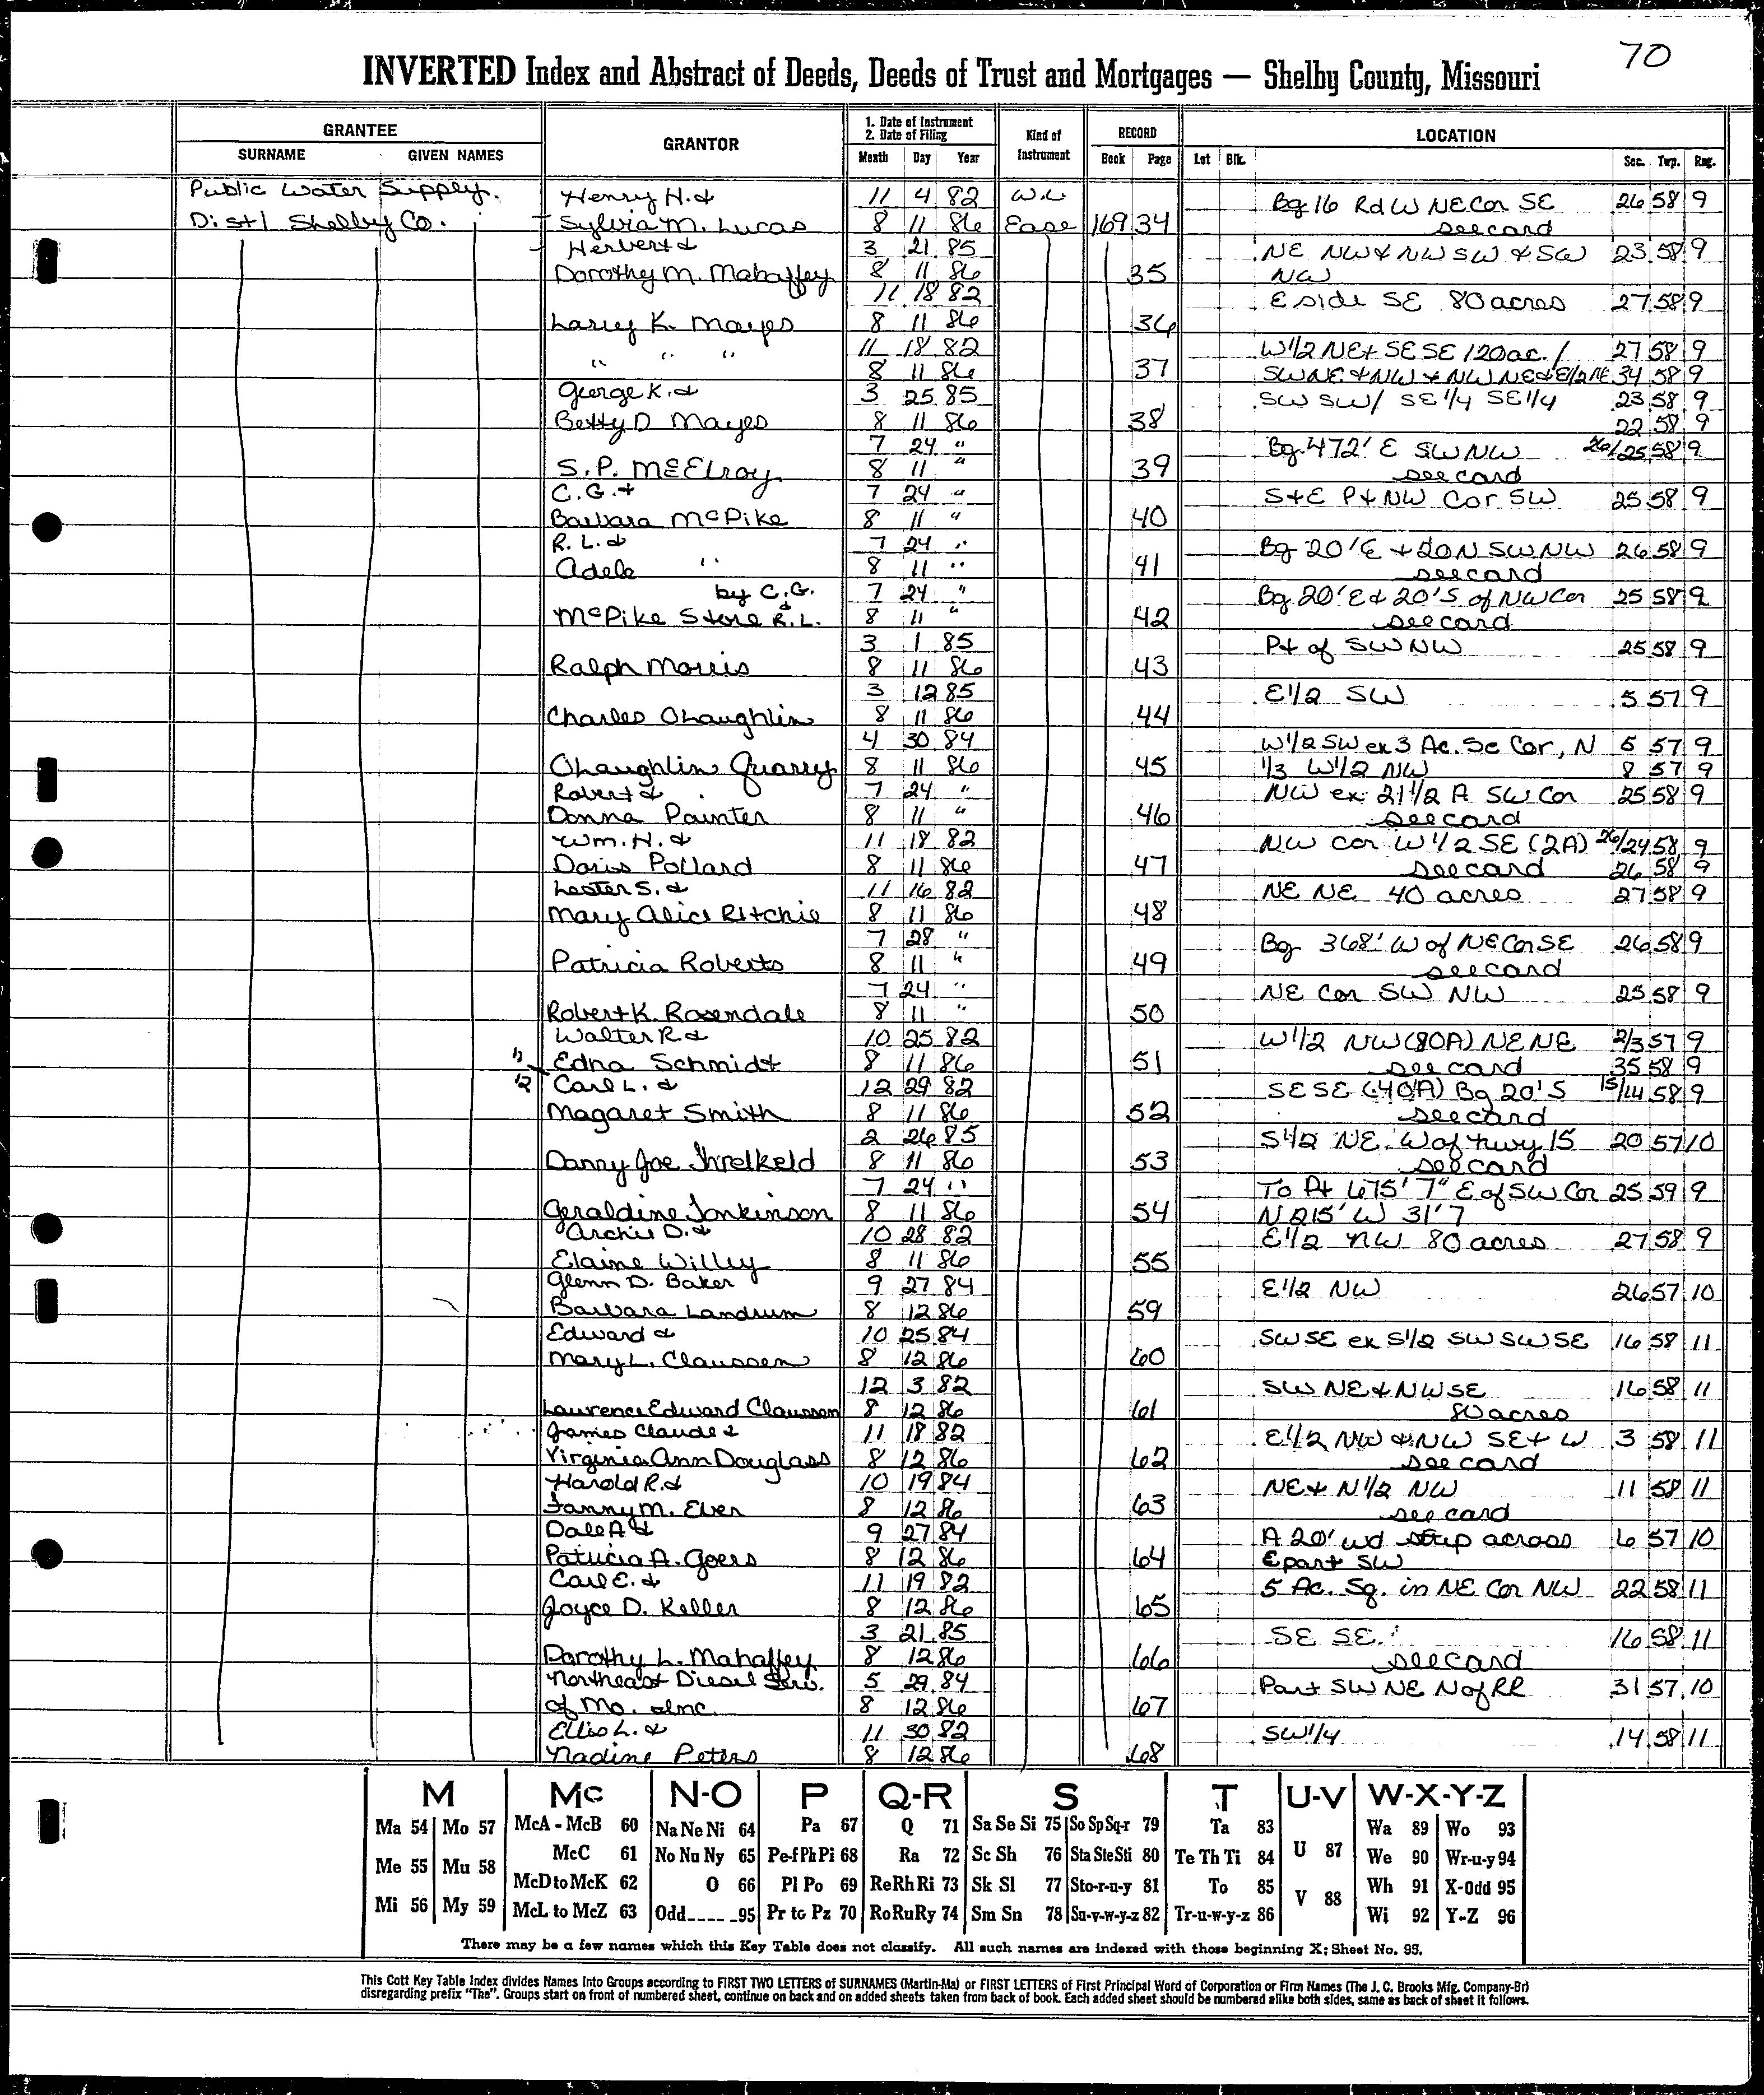 70
INVERTED Index and Abstract of Deeds, Deeds of Trust and Mortgages — Shelby County, Missouri
GRANTEE GRANTOR 1. Date of Instrument 2. Date of Filing Kind of Instrument RECORD LOCATION
SURNAME GIVEN NAMES Month Day Year Book Page Lot Blk. Sec. Twp. Rng.
Public Water Supply. Henry H. & 11 4 82 W.L Bg 16 Rd W NE Cor SE 26 58 9
Dist 1 Shelby Co. Sylvia M. Lucas 8 11 86 Ease 169 34 see card
Herbert & 3 21 85 NE NW & NW SW & SW 23 58 9
Dorothy M. Mahaffey 8 11 86 35 NW
11 18 82 E side SE 80 acres 27 58 9
Larry K. Mayes 8 11 86 36
" " " 11 18 82 W1/2 NE & SE SE 120 ac. / 27 58 9
8 11 86 37 SW NE & NW & NW NE & E1/2 NE 34 58 9
George K. & 3 25 85 SW SW / SE 1/4 SE 1/4 23 58 9
Betty D Mayes 8 11 86 38 22 58 9
7 24 " Bg. 472' E SW NW 26/25 58 9
S.P. McElroy 8 11 " 39 see card
C.G. & 7 24 " S & E Pt NW Cor SW 25 58 9
Barbara McPike 8 11 " 40
R.L. & 7 24 " Bg 20' E + 20 N SW NW 26 58 9
Adele " 8 11 " 41 see card
by C.G. 7 24 " Bg. 20' E & 20' S of NW Cor 25 58 9
McPike Store & R.L. 8 11 " 42 see card
3 1 85 Pt of SW NW 25 58 9
Ralph Morris 8 11 86 43
3 12 85 E 1/2 SW 5 57 9
Charles OLaughlin 8 11 86 44
4 30 84 W 1/2 SW ex 3 Ac. Se Cor, N 5 57 9
OLaughlin Quarry 8 11 86 45 1/3 W 1/2 NW 8 57 9
Robert & 7 24 " NW ex 21 1/2 A SW Cor 25 58 9
Donna Painter 8 11 " 46 see card
Wm. H. & 11 18 82 NW cor W 1/2 SE (2A) 26/24 58 9
Doris Pollard 8 11 86 47 see card 26 58 9
Lester S. & 11 16 82 NE NE 40 acres 27 58 9
Mary Alice Ritchie 8 11 86 48
7 28 " Bg 368' W of NE Cor SE 26 58 9
Patricia Roberts 8 11 " 49 see card
7 24 " NE Cor SW NW 25 58 9
Robert K. Rosendale 8 11 " 50
Walter R & 10 25 82 W 1/2 NW (80A) NE NE 2/3 57 9
11 Edna Schmidt 8 11 86 51 see card 35 58 9
12 Carl L. & 12 29 82 SE SE (40A) Bg 20' S 15/14 58 9
Magaret Smith 8 11 86 52 see card
2 26 85 S 1/2 NE. W of Hwy 15 20 57 10
Danny Joe Threlkeld 8 11 86 53 see card
7 24 " To Pt 675' 7" E of SW Cor 25 59 9
Geraldine Tonkinson 8 11 86 54 N 215' W 31' 7
Archie D. & 10 28 82 E 1/2 NW 80 acres 27 58 9
Elaine Willey 8 11 86 55
Glenn D. Baker 9 27 84 E 1/2 NW 26 57 10
Barbara Landrum 8 12 86 59
Edward & 10 25 84 SW SE ex S 1/2 SW SW SE 16 58 11
Mary L. Claussen 8 12 86 60
12 3 82 SW NE & NW SE 16 58 11
Lawrence Edward Claussen 8 12 86 61 80 acres
James Claude & 11 18 82 E 1/2 NW & NW SE & W 3 58 11
Virginia Ann Douglass 8 12 86 62 see card
Harold R. & 10 19 84 NE & N 1/2 NW 11 58 11
Fanny M. Ever 8 12 86 63 see card
Dale A & 9 27 84 A 20' wd strip across 6 57 10
Patricia A. Goers 8 12 86 64 E part SW
Carl E. & 11 19 82 5 Ac. Sq. in NE Cor NW 22 58 11
Joyce D. Keller 8 12 86 65
3 21 85 SE SE. 16 58 11
Dorothy L. Mahaffey 8 12 86 66 see card
Northeast Diesel Serv. 5 29 84 Part SW NE N of RR 31 57 10
of Mo. Inc. 8 12 86 67
Ellis L. & 11 30 82 SW 1/4 14 58 11
Nadine Peters 8 12 86 68
M Mc N-O P Q-R S T U-V W-X-Y-Z
Ma 54 Mo 57 McA - McB 60 Na Ne Ni 64 Pa 67 Q 71 Sa Se Si 75 So Sp Sq-r 79 Ta 83 Wa 89 Wo 93
Me 55 Mu 58 McC 61 No Nu Ny 65 Pe-f Ph Pi 68 Ra 72 Sc Sh 76 Sta Ste Sti 80 Te Th Ti 84 U 87 We 90 Wr-u-y 94
McD to McK 62 O 66 Pl Po 69 Re Rh Ri 73 Sk Sl 77 Sto-r-u-y 81 To 85 Wh 91 X-Odd 95
Mi 56 My 59 McL to McZ 63 Odd 95 Pr to Pz 70 Ro Ru Ry 74 Sm Sn 78 Su-v-w-y-z 82 Tr-u-w-y-z 86 V 88 Wi 92 Y-Z 96
There may be a few names which this Key Table does not classify. All such names are indexed with those beginning X; Sheet No. 95.
This Cott Key Table Index divides Names into Groups according to FIRST TWO LETTERS of SURNAMES (Martin-Ma) or FIRST LETTERS of First Principal Word of Corporation or Firm Names (The J. C. Brooks Mfg. Company-Br)
disregarding prefix "The". Groups start on front of numbered sheet, continue on back and on added sheets taken from back of book. Each added sheet should be numbered alike both sides, same as back of sheet it follows.